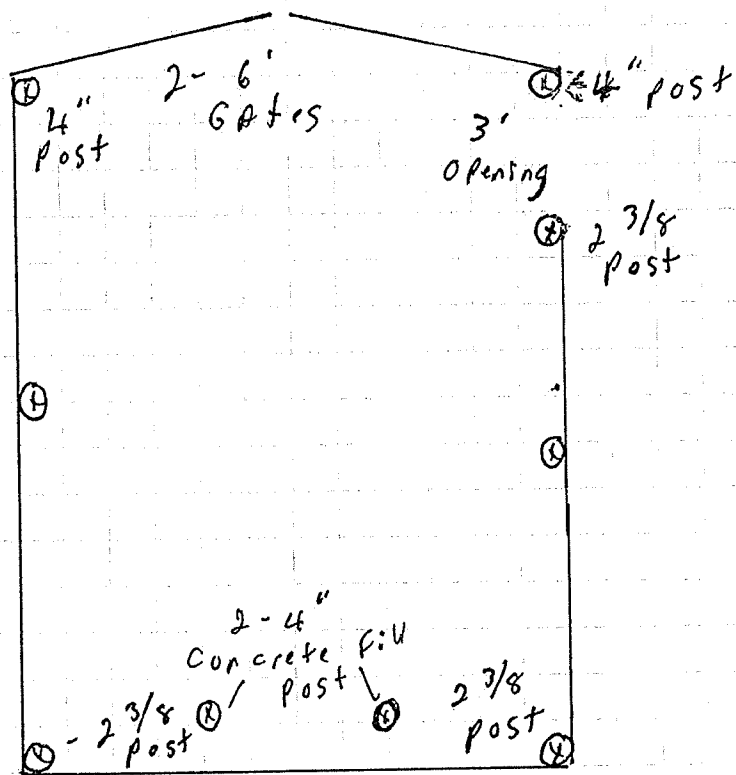 2 - 6'
GAtes
4"
post
4" post
3'
opening
2 3/8
post
2 - 4"
Concrete Fill
post
- 2 3/8
post
2 3/8
post